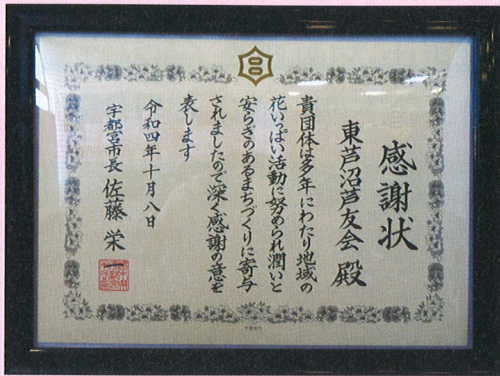 感謝状
東芦沼芦友会 殿
貴団体は多年にわたり地域の
花いっぱい活動に努められ潤いと
安らぎのあるまちづくりに寄与
されましたので深く感謝の意を
表します
令和四年十月八日
宇都宮市長 佐藤栄一